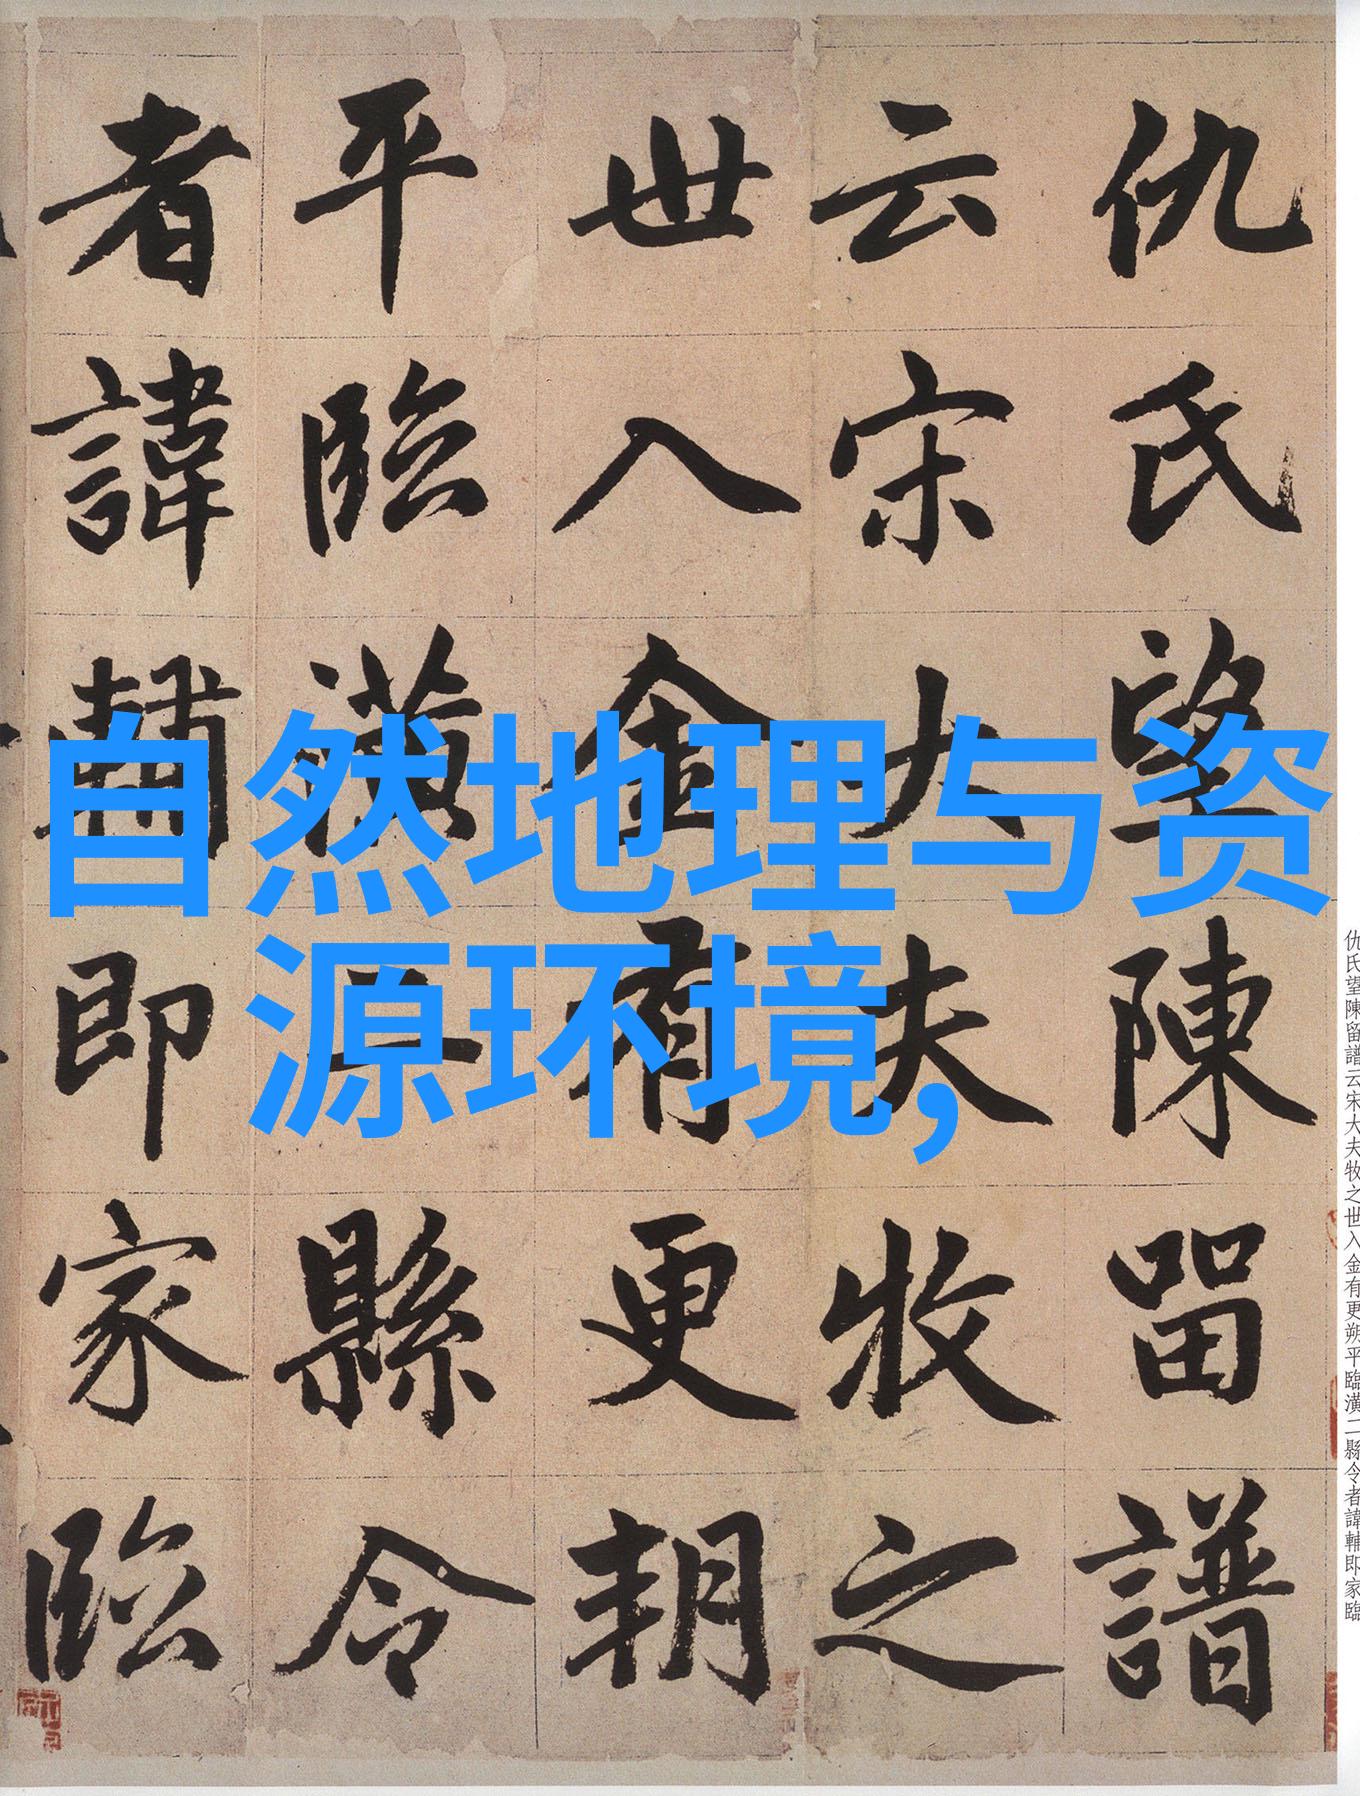 自然地理与资
源环境,
仇氏望陳留譜
云宋大夫牧之
世入金有更朔
平臨潢二縣令
者諱輔即家臨
仇氏望陳留譜云宋大夫牧之世入金有更朔平臨潢二縣令者諱輔即家臨